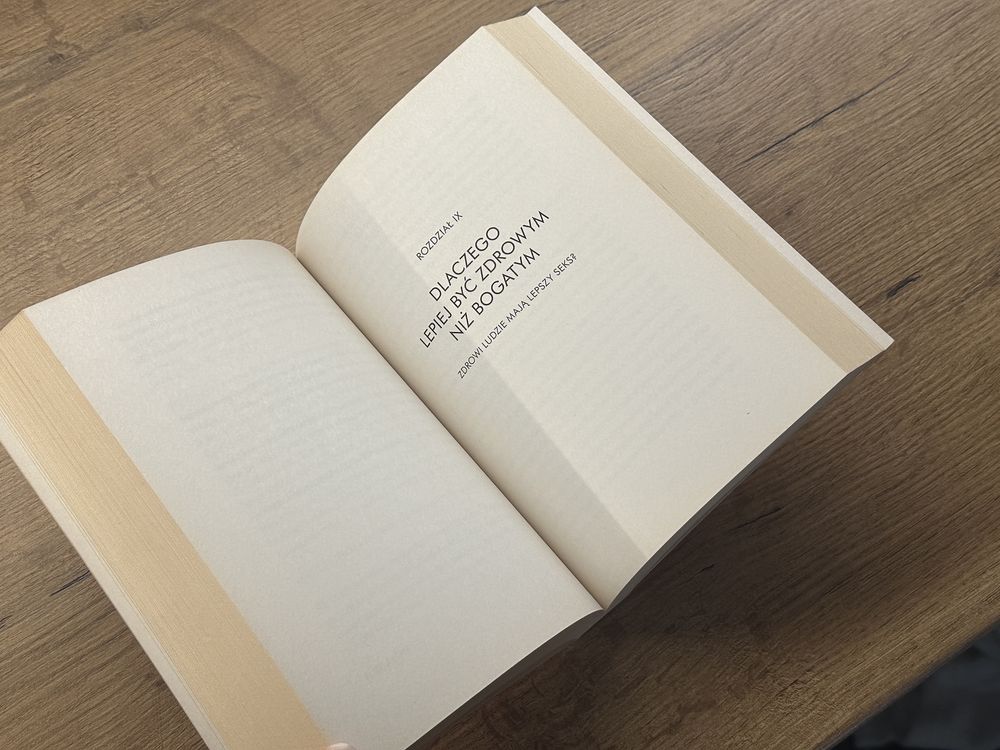 ROZDZIAŁ IX
DLACZEGO
LEPIEJ BYĆ ZDROWYM
NIŻ BOGATYM
ZDROWI LUDZIE MAJĄ LEPSZY SEKS?